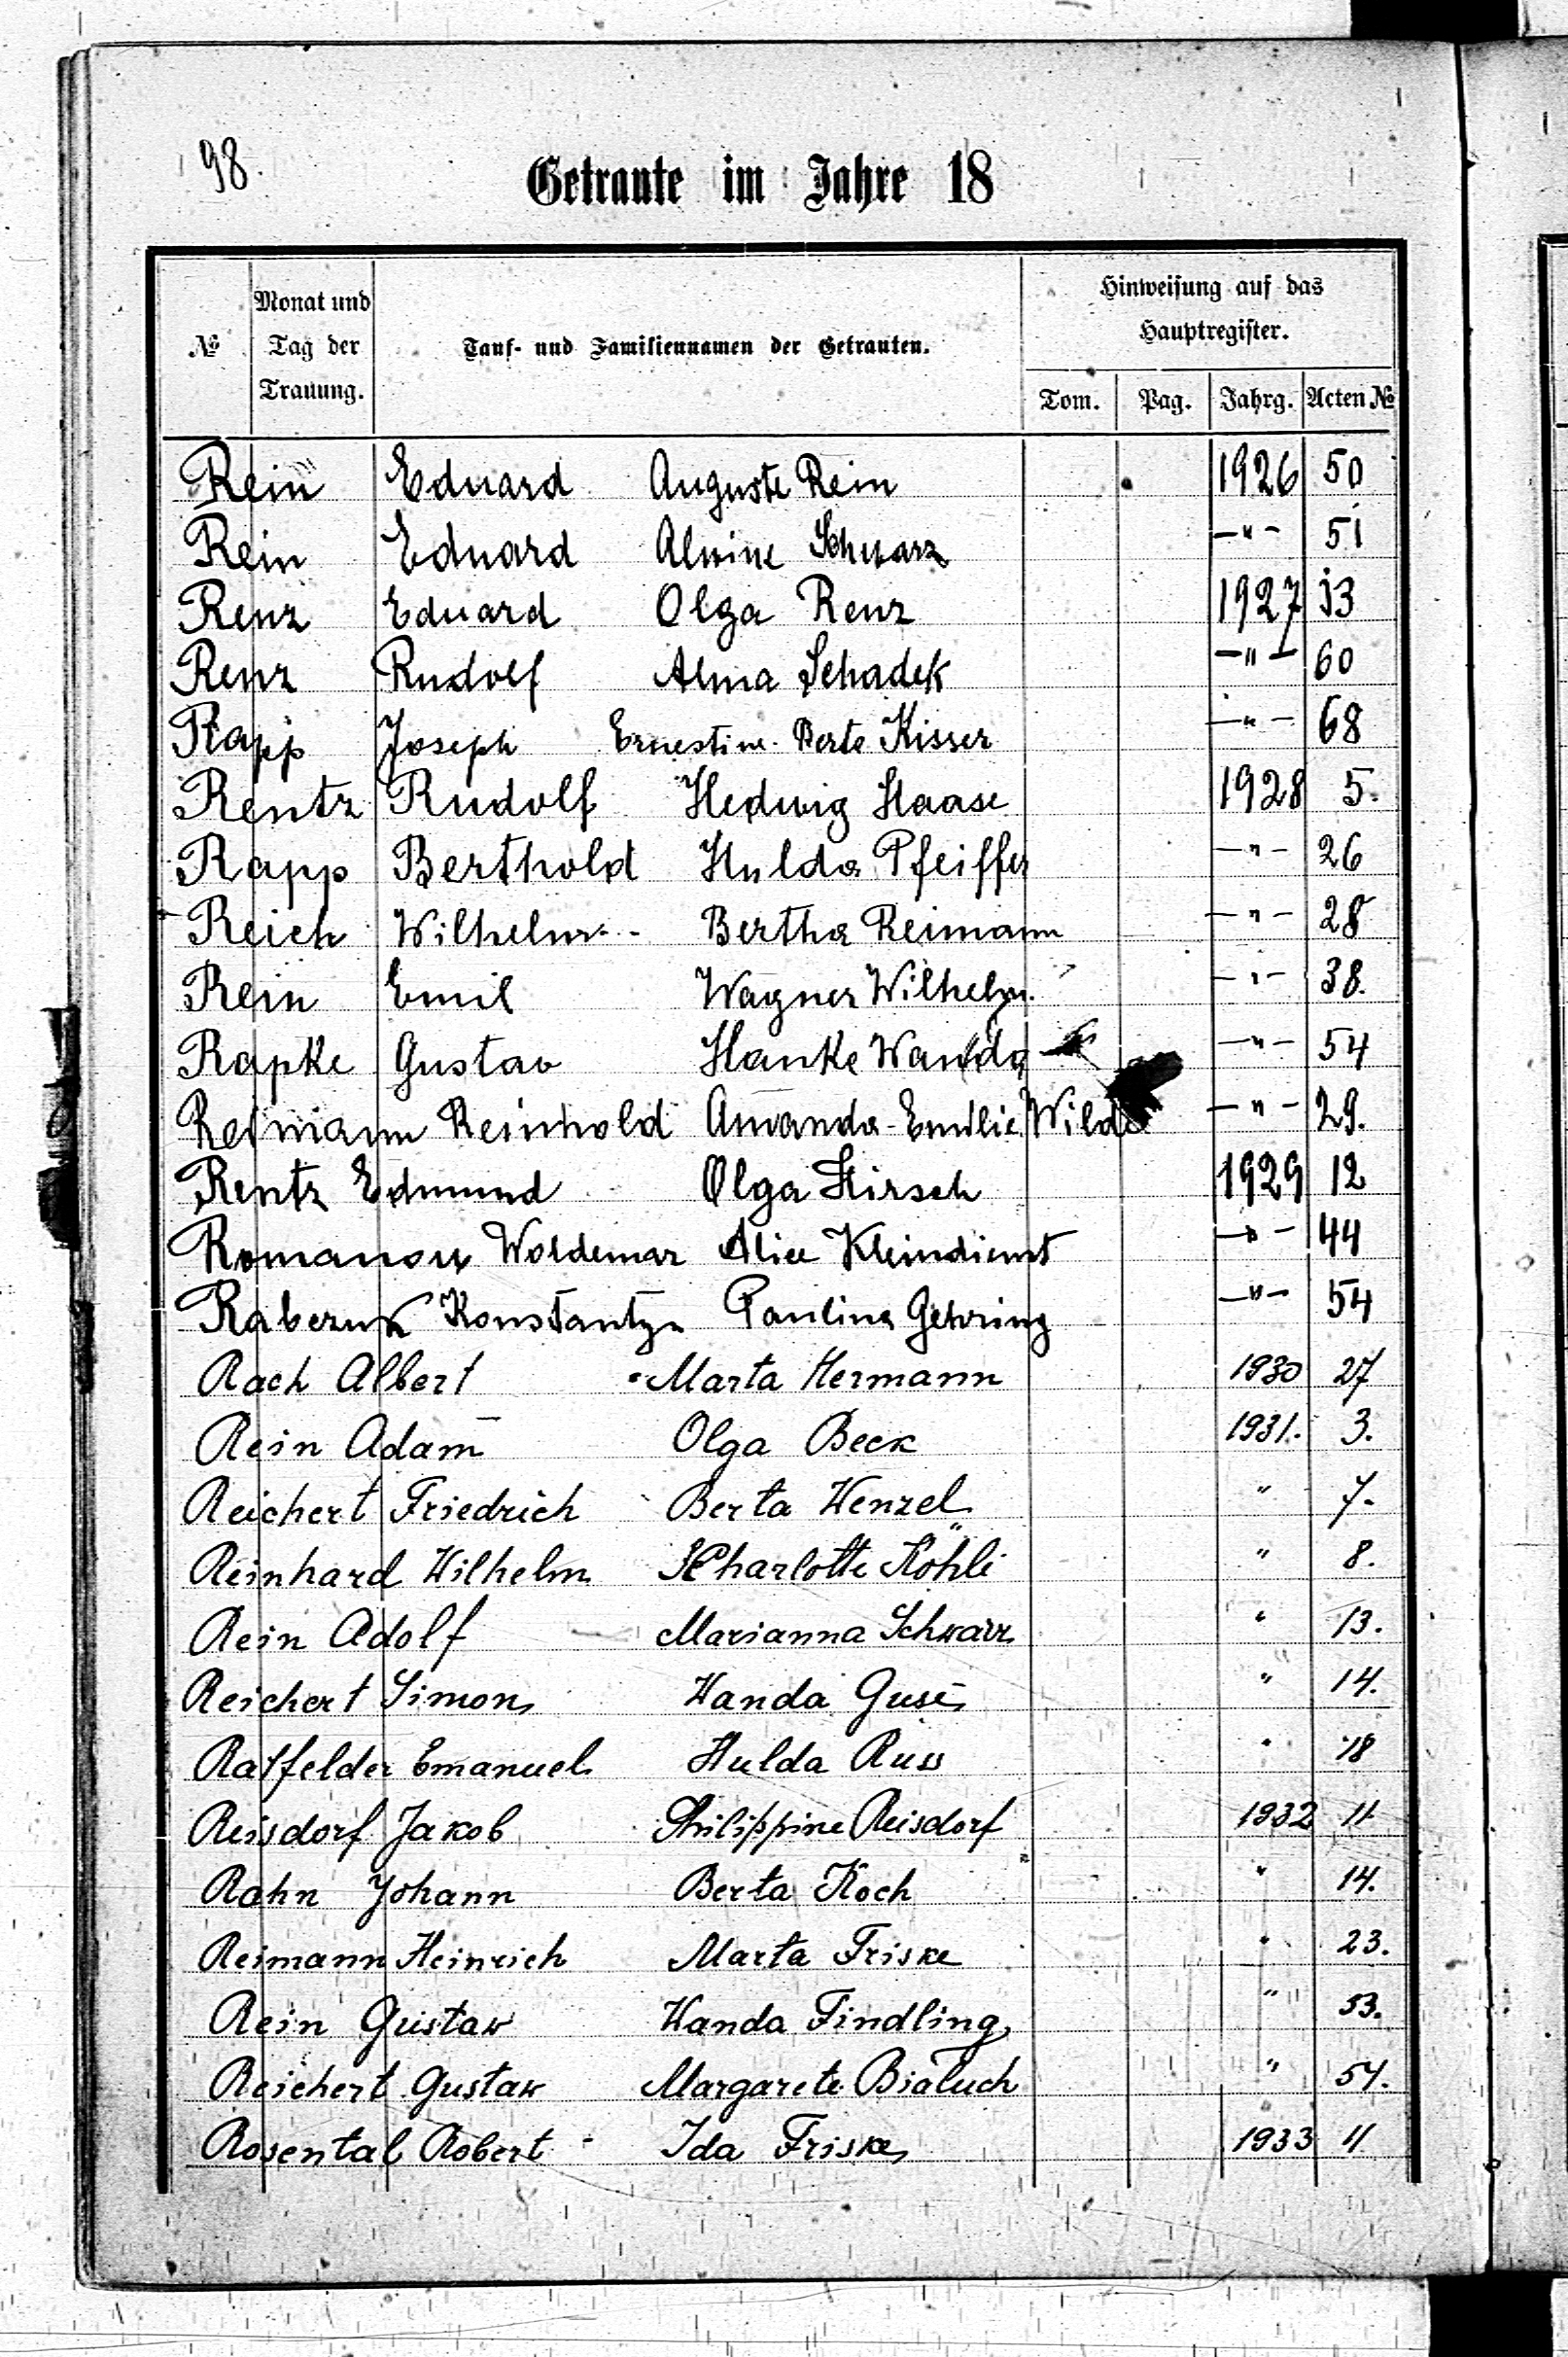 98.
Getraute im Jahre 18
№ Monat und Tag der Trauung. Tauf- und Familiennamen der Getrauten. Hinweisung auf das Hauptregister.
Tom. Pag. Jahrg. Acten №
Rein Eduard Auguste Rein 1926 50
Rein Eduard Alwine Schwarz —"— 51
Renz Eduard Olga Renz 1927 33
Renz Rudolf Alma Schadek —"— 60
Rapp Joseph Ernestine Berta Kisser —"— 68
Rentz Rudolf Hedwig Haase 1928 5.
Rapp Berthold Hulda Pfeiffer —"— 26
Reich Wilhelm Bertha Reimann —"— 28
Rein Emil Wagner Wilhelm. —"— 38.
Rapke Gustav Hanke Wanda —"— 54
Reimann Reinhold Amanda-Emilie Wilde —"— 29.
Rentz Edmund Olga Hirsch 1929 12
Romanow Woldemar Alice Kleindienst —"— 44
Konstantyn Paulina Gehring —"— 54
Rach Albert Marta Hermann 1930 27
Rein Adam Olga Beck 1931. 3.
Reichert Friedrich Berta Wenzel " 7.
Reinhard Wilhelm Charlotte Köhli " 8.
Rein Adolf Marianna Schwarz " 13.
Reichert Simon Wanda Guse " 14.
Ratfelder Emanuel Hulda Russ " 18
Reisdorf Jakob Philippine Reisdorf 1932 11
Rahn Johann Berta Koch " 14.
Reimann Heinrich Marta Friske " 23.
Rein Gustaw Wanda Findling " 53.
Reichert Gustaw Margarete Bialuch " 54.
Rosental Robert Ida Friske 1933 11